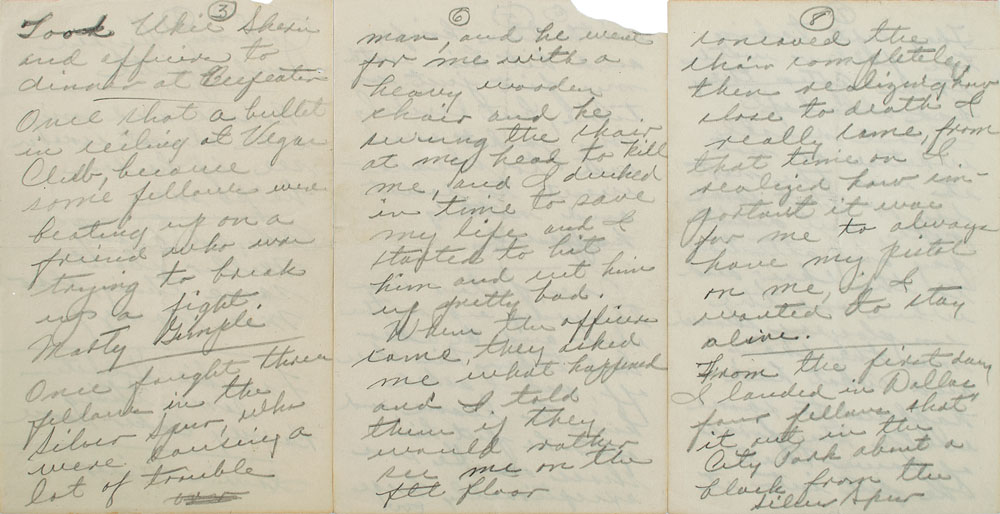 3
Took Ukie Sherin
and officer to
dinner at Beefeater
Once shot a bullet
in ceiling at Vegas
Club, because
some fellows were
beating up on a
friend who was
trying to break
up a fight.
Marty Gimple
Once fought three
fellows in the
Silver Spur, who
were causing a
lot of trouble
6
man, and he went
for me with a
heavy wooden
chair and he
swung the chair
at my head to kill
me, and I ducked
in time to save
my life and I
started to hit
him and cut him
up pretty bad.
When the officers
came, they asked
me what happened
and I told
them if they
would rather
see me on the
floor
8
removed the
chair completely,
then realizing how
close to death I
really came, from
that time on I
realized how im-
portant it was
for me to always
have my pistol
on me, if I
wanted to stay
alive.
From the first day
I landed in Dallas
four fellows shot
it out in the
City Park about a
block from the
Silver Spur